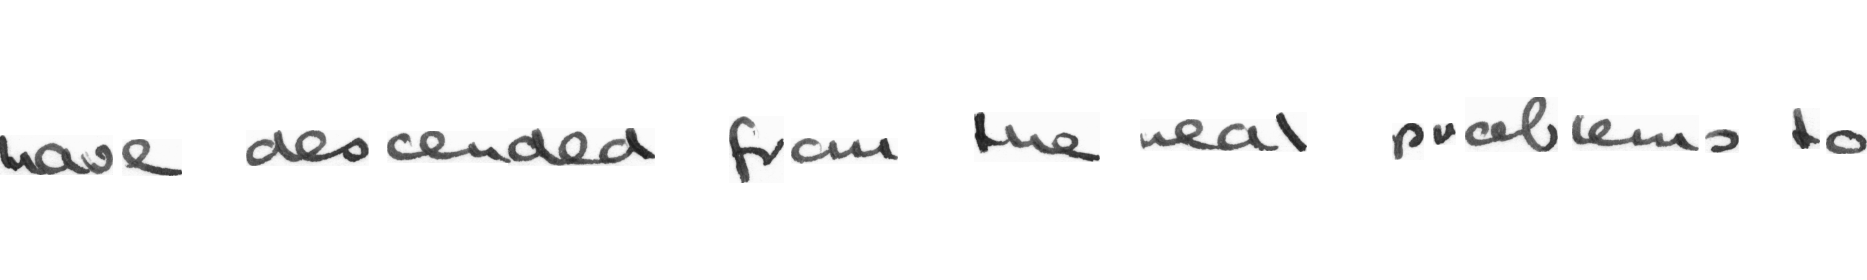 have descended from the real problems to